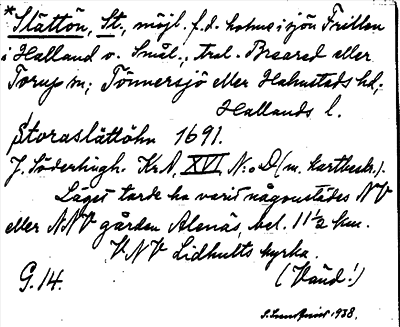 *Slättön, St., möjl. f.d. holme i sjön Fritten
i Halland o. Smål., trol. Breared eller
Torup sn; Tönnersjö eller Halmstads hd,
Hallands l.
Storaslättöhn 1691.
J. Söderhugh. Kr.A, XVI, N:o D (m. kartbeskr.).
Läget torde ha varit någonstädes NV
eller NNV gården Alenäs, bel. 11½ km.
VNV Lidhults kyrka.
G. 14. (Vänd!)
1938.